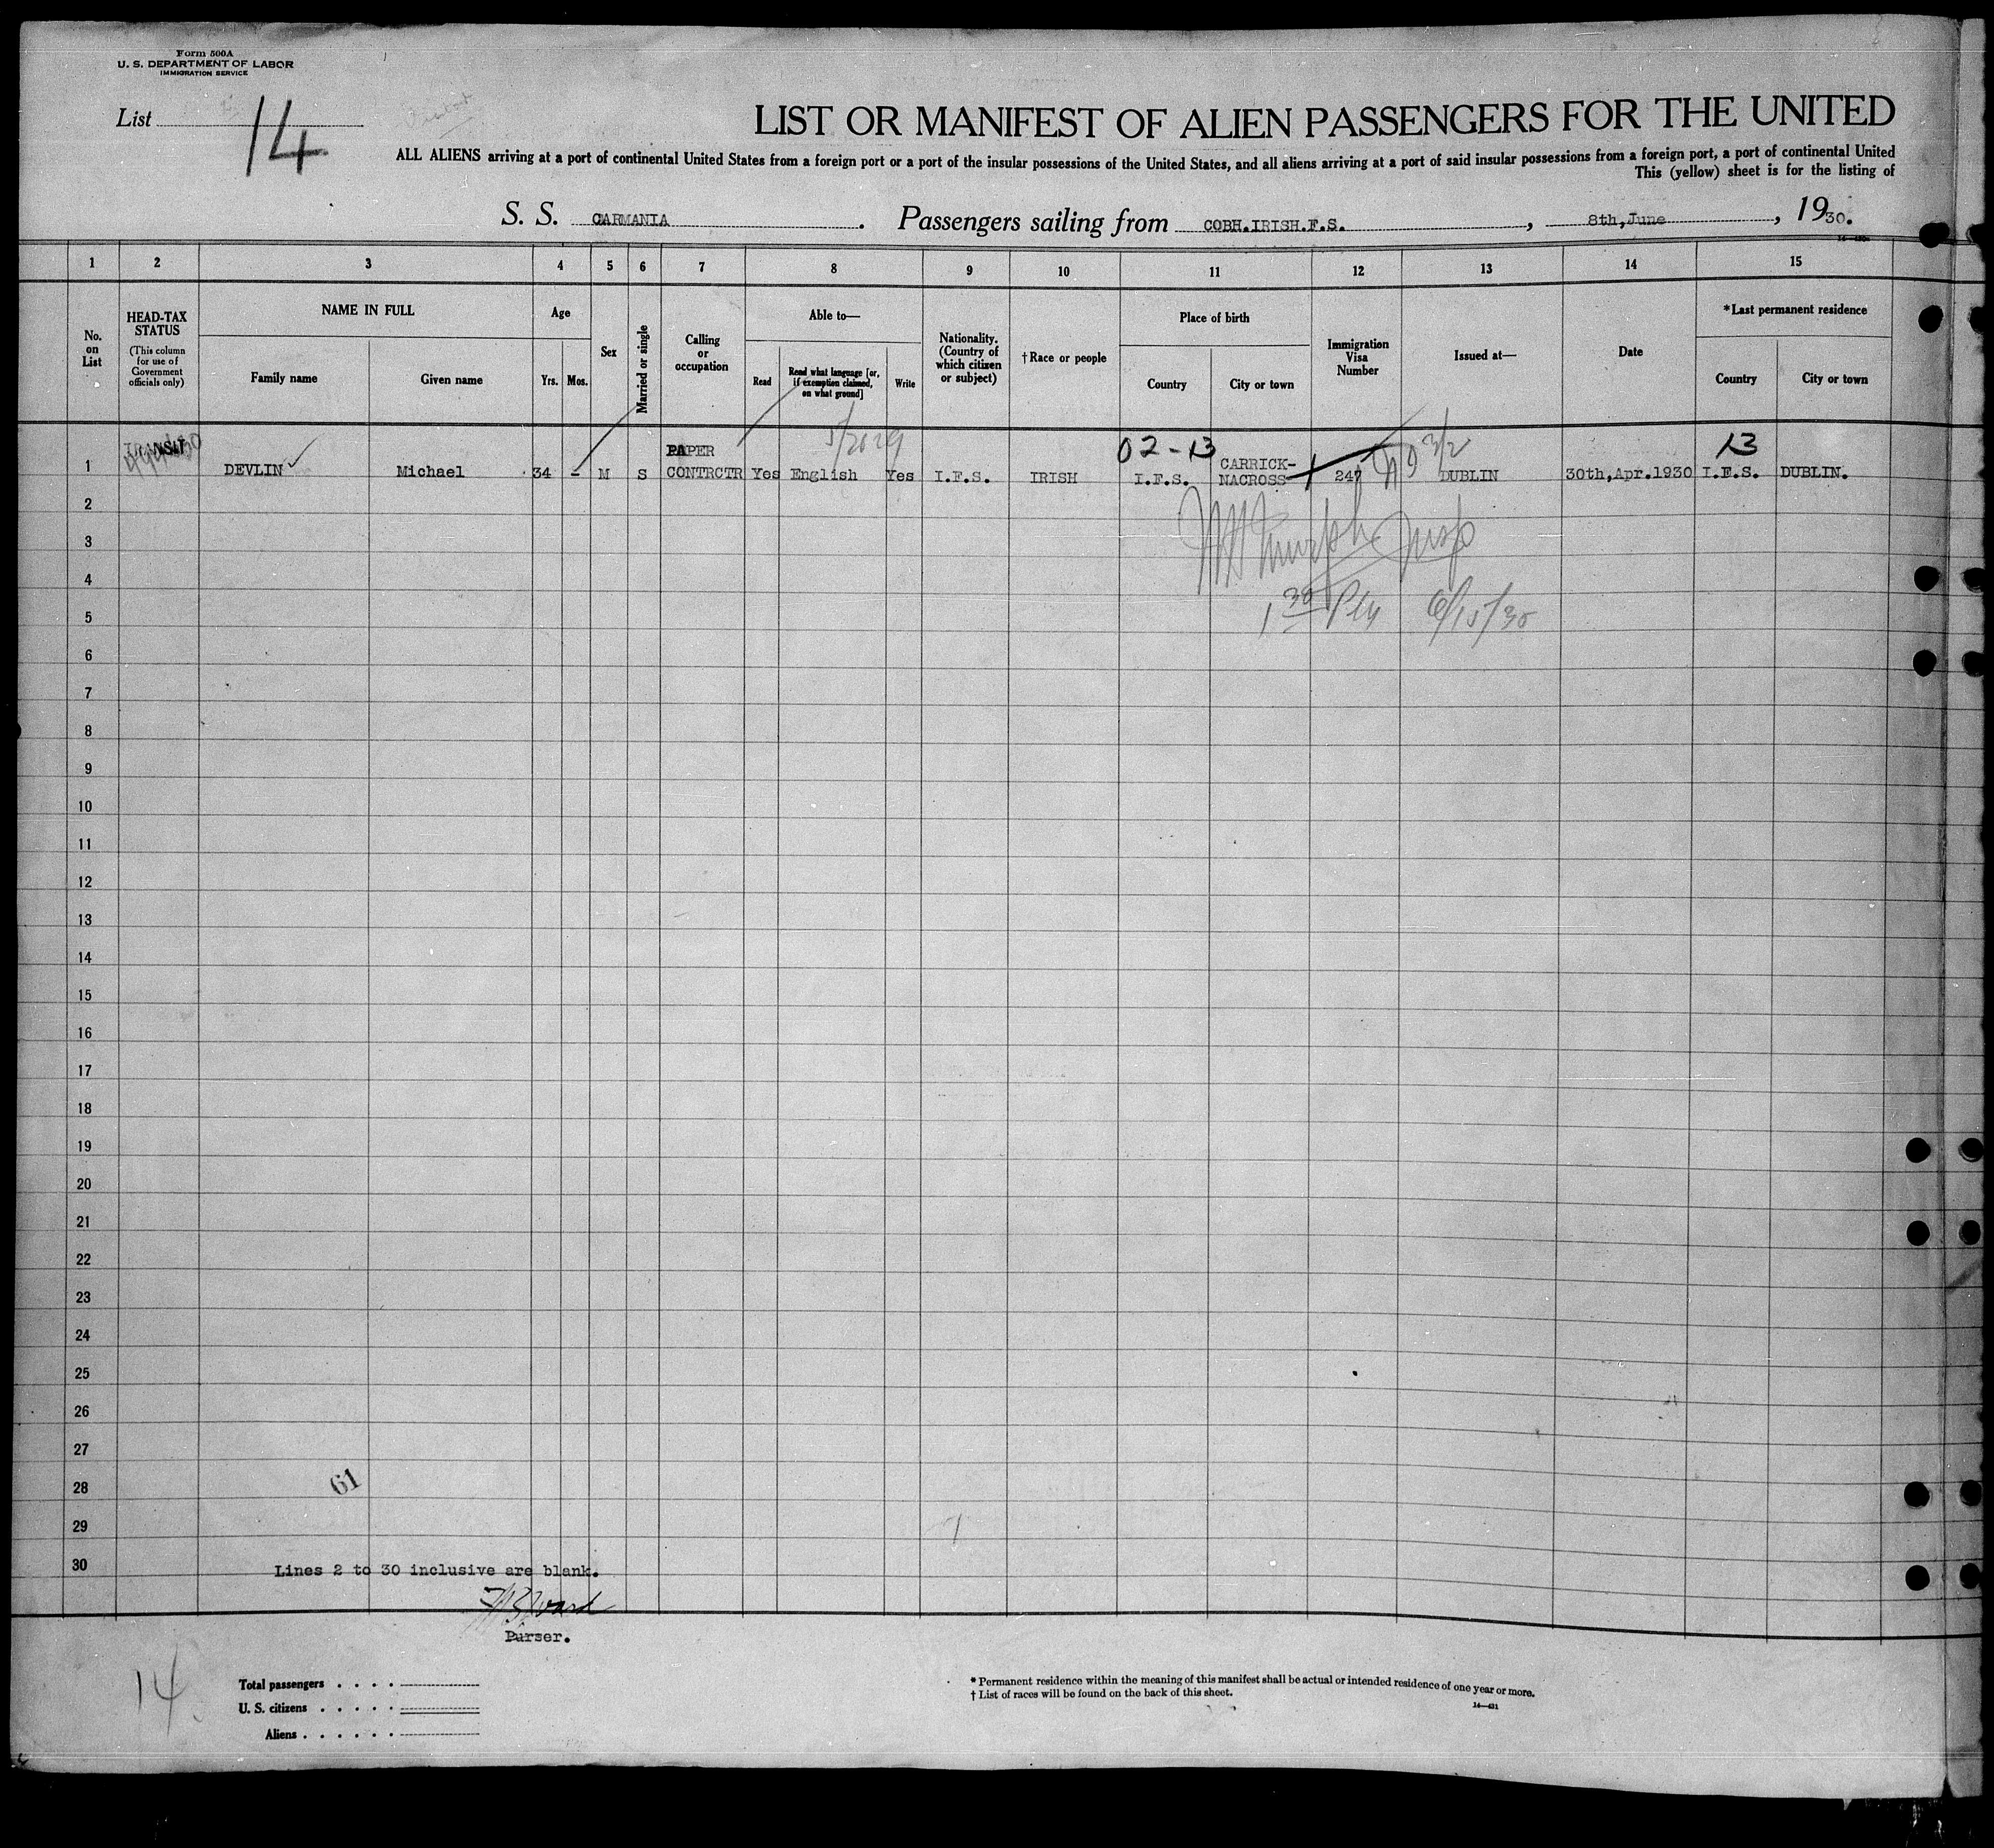 Form 500A
U. S. DEPARTMENT OF LABOR
IMMIGRATION SERVICE
List 14
LIST OR MANIFEST OF ALIEN PASSENGERS FOR THE UNITED
ALL ALIENS arriving at a port of continental United States from a foreign port or a port of the insular possessions of the United States, and all aliens arriving at a port of said insular possessions from a foreign port, a port of continental United
This (yellow) sheet is for the listing of
S. S. CARMANIA. Passengers sailing from COBH.IRISH.F.S., 8th,June, 1930.
1 2 3 4 5 6 7 8 9 10 11 12 13 14 15
No. on List
HEAD-TAX STATUS
(This column for use of Government officials only)
NAME IN FULL
Family name
Given name
Age
Yrs.
Mos.
Sex
Married or single
Calling or occupation
Able to—
Read
Read what language [or, if exemption claimed, on what ground]
Write
Nationality. (Country of which citizen or subject)
†Race or people
Place of birth
Country
City or town
Immigration Visa Number
Issued at—
Date
*Last permanent residence
Country
City or town
TRANSIT
02-13
3/2
13
1 DEVLIN Michael 34 - M S PAPER CONTRCTR Yes English Yes I.F.S. IRISH I.F.S. CARRICK-NACROSS 247 DUBLIN 30th,Apr.1930 I.F.S. DUBLIN.
2
3
4
5
6/15/30
6
7
8
9
10
11
12
13
14
15
16
17
18
19
20
21
22
23
24
25
26
27
28
61
29
30
Lines 2 to 30 inclusive are blank.
Purser.
14
Total passengers . . . .
U. S. citizens . . . . .
Aliens . . . . . .
* Permanent residence within the meaning of this manifest shall be actual or intended residence of one year or more.
† List of races will be found on the back of this sheet.
14—431